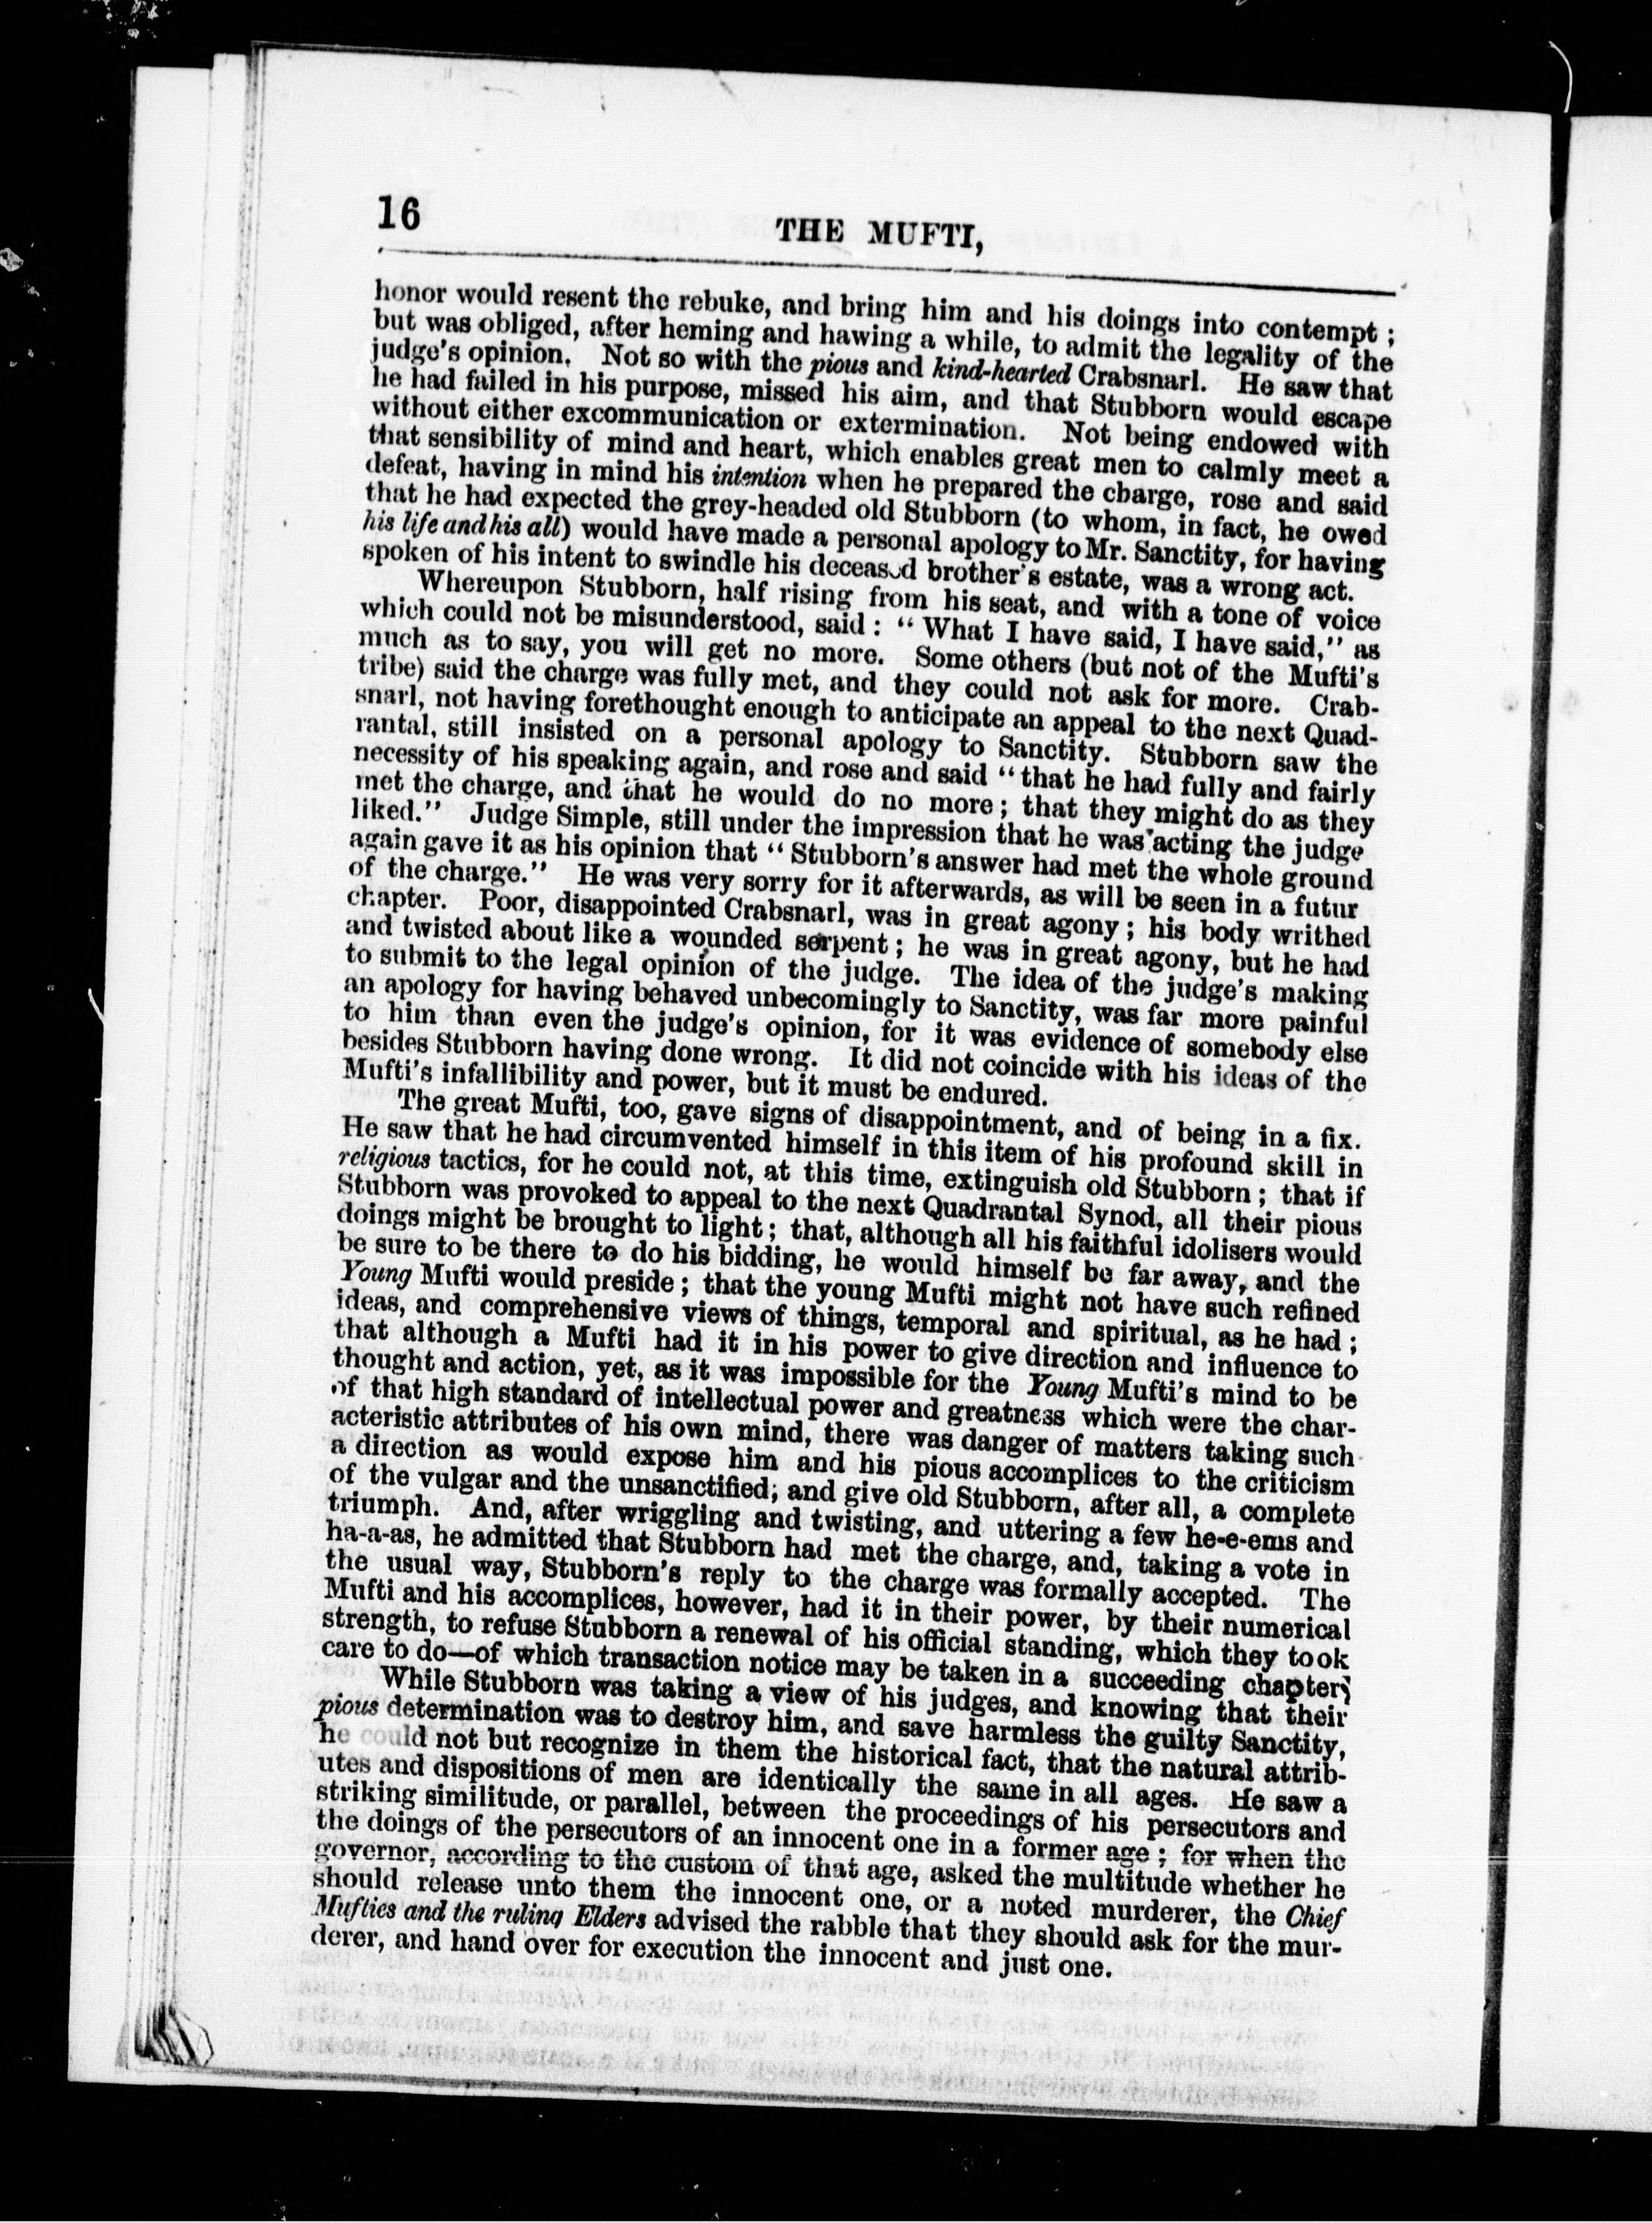 16
THE MUFTI,
honor would resent the rebuke, and bring him and his doings into contempt ;
but was obliged, after heming and hawing a while, to admit the legality of the
judge's opinion. Not so with the pious and kind-hearted Crabsnarl. He saw that
he had failed in his purpose, missed his aim, and that Stubborn would escape
without either excommunication or extermination. Not being endowed with
that sensibility of mind and heart, which enables great men to calmly meet a
defeat, having in mind his intention when he prepared the charge, rose and said
that he had expected the grey-headed old Stubborn (to whom, in fact, he owed
his life and his all) would have made a personal apology to Mr. Sanctity, for having
spoken of his intent to swindle his deceased brother's estate, was a wrong act.
Whereupon Stubborn, half rising from his seat, and with a tone of voice
which could not be misunderstood, said : " What I have said, I have said," as
much as to say, you will get no more. Some others (but not of the Mufti's
tribe) said the charge was fully met, and they could not ask for more. Crab-
snarl, not having forethought enough to anticipate an appeal to the next Quad-
rantal, still insisted on a personal apology to Sanctity. Stubborn saw the
necessity of his speaking again, and rose and said " that he had fully and fairly
met the charge, and that he would do no more ; that they might do as they
liked." Judge Simple, still under the impression that he was acting the judge
again gave it as his opinion that " Stubborn's answer had met the whole ground
of the charge." He was very sorry for it afterwards, as will be seen in a futur
chapter. Poor, disappointed Crabsnarl, was in great agony ; his body writhed
and twisted about like a wounded serpent ; he was in great agony, but he had
to submit to the legal opinion of the judge. The idea of the judge's making
an apology for having behaved unbecomingly to Sanctity, was far more painful
to him than even the judge's opinion, for it was evidence of somebody else
besides Stubborn having done wrong. It did not coincide with his ideas of the
Mufti's infallibility and power, but it must be endured.
The great Mufti, too, gave signs of disappointment, and of being in a fix.
He saw that he had circumvented himself in this item of his profound skill in
religious tactics, for he could not, at this time, extinguish old Stubborn ; that if
Stubborn was provoked to appeal to the next Quadrantal Synod, all their pious
doings might be brought to light ; that, although all his faithful idolisers would
be sure to be there to do his bidding, he would himself be far away, and the
Young Mufti would preside ; that the young Mufti might not have such refined
ideas, and comprehensive views of things, temporal and spiritual, as he had ;
that although a Mufti had it in his power to give direction and influence to
thought and action, yet, as it was impossible for the Young Mufti's mind to be
of that high standard of intellectual power and greatness which were the char-
acteristic attributes of his own mind, there was danger of matters taking such
a direction as would expose him and his pious accomplices to the criticism
of the vulgar and the unsanctified; and give old Stubborn, after all, a complete
triumph. And, after wriggling and twisting, and uttering a few he-e-ems and
ha-a-as, he admitted that Stubborn had met the charge, and, taking a vote in
the usual way, Stubborn's reply to the charge was formally accepted. The
Mufti and his accomplices, however, had it in their power, by their numerical
strength, to refuse Stubborn a renewal of his official standing, which they took
care to do—of which transaction notice may be taken in a succeeding chapter
While Stubborn was taking a view of his judges, and knowing that their
pious determination was to destroy him, and save harmless the guilty Sanctity,
he could not but recognize in them the historical fact, that the natural attrib-
utes and dispositions of men are identically the same in all ages. He saw a
striking similitude, or parallel, between the proceedings of his persecutors and
the doings of the persecutors of an innocent one in a former age ; for when the
governor, according to the custom of that age, asked the multitude whether he
should release unto them the innocent one, or a noted murderer, the Chief
Mufties and the ruling Elders advised the rabble that they should ask for the mur-
derer, and hand over for execution the innocent and just one.